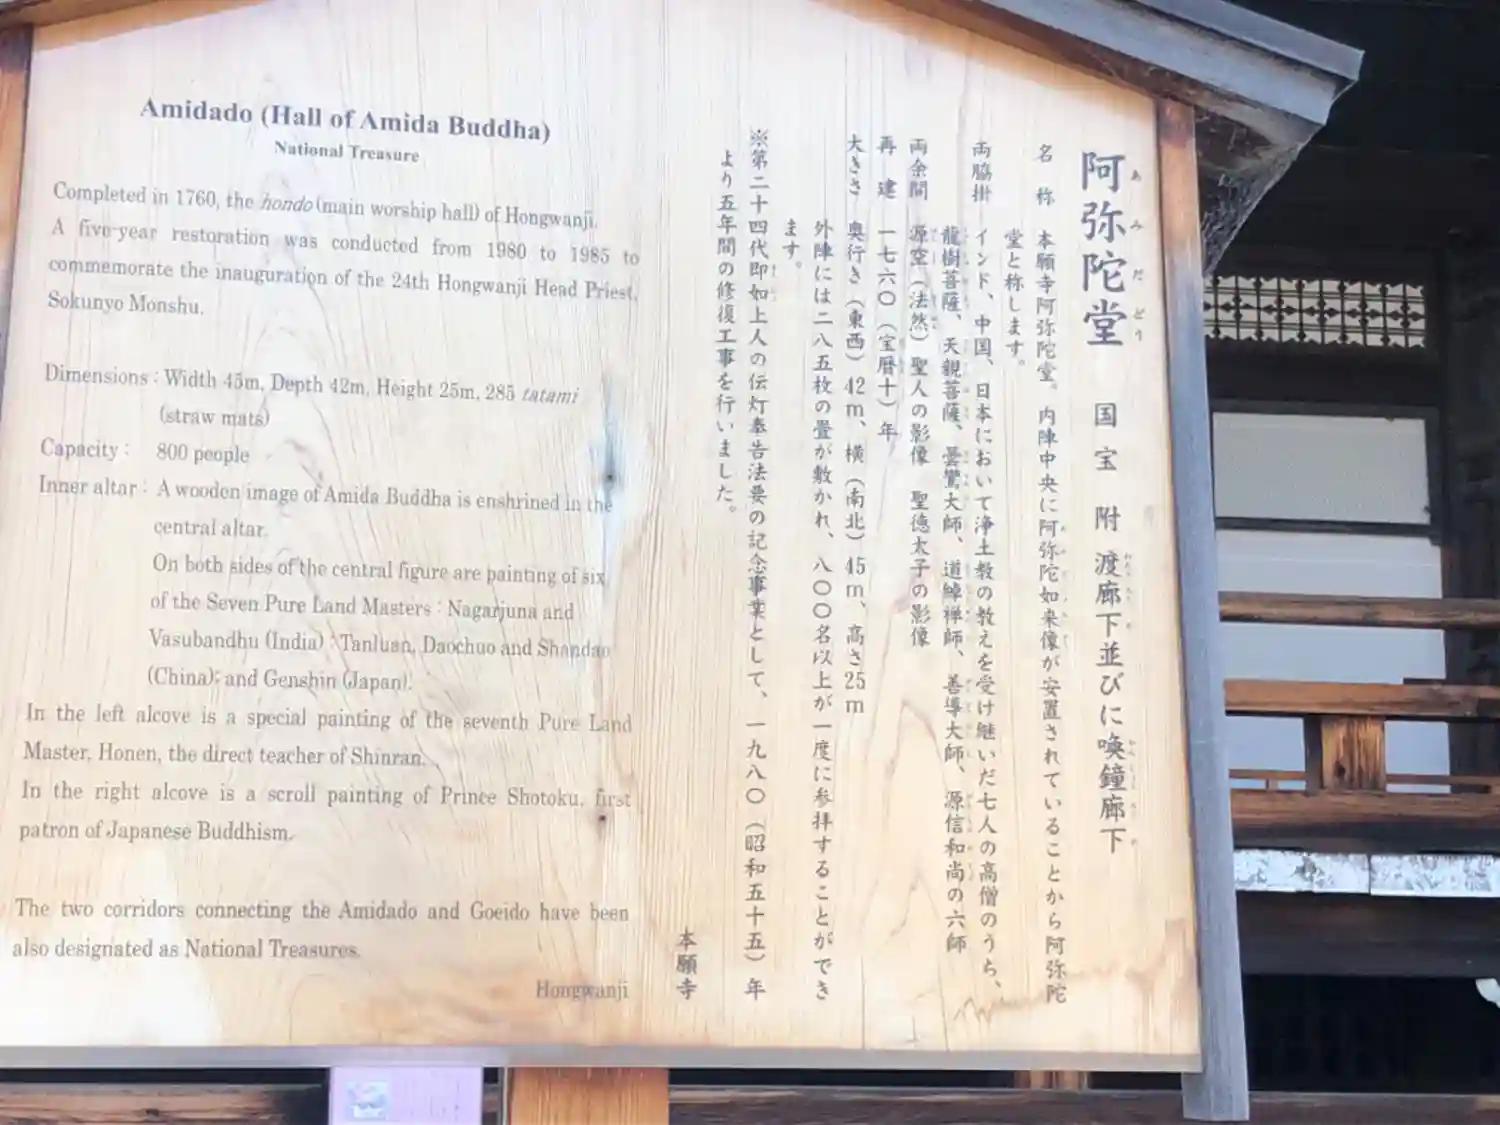 Amidado (Hall of Amida Buddha)
National Treasure
Completed in 1760, the hondo (main worship hall) of Hongwanji.
A five-year restoration was conducted from 1980 to 1985 to
commemorate the inauguration of the 24th Hongwanji Head Priest,
Sokunyo Monshu.
Dimensions : Width 45m, Depth 42m, Height 25m, 285 tatami
(straw mats)
Capacity : 800 people
Inner altar : A wooden image of Amida Buddha is enshrined in the
central altar.
On both sides of the central figure are painting of six
of the Seven Pure Land Masters : Nagarjuna and
Vasubandhu (India) ; Tanluan, Daochuo and Shandao
(China); and Genshin (Japan).
In the left alcove is a special painting of the seventh Pure Land
Master, Honen, the direct teacher of Shinran.
In the right alcove is a scroll painting of Prince Shotoku, first
patron of Japanese Buddhism.
The two corridors connecting the Amidado and Goeido have been
also designated as National Treasures.
Hongwanji
阿弥陀堂 国宝 附 渡廊下並びに喚鐘廊下
あみだどう
名称 本願寺阿弥陀堂。内陣中央に阿弥陀如来像が安置されていることから阿弥陀
堂と称します。
両脇掛 インド、中国、日本において浄土教の教えを受け継いだ七人の高僧のうち、
龍樹菩薩、天親菩薩、曇鸞大師、道綽禅師、善導大師、源信和尚の六師
両余間 源空(法然)聖人の影像 聖徳太子の影像
再建 一七六〇(宝暦十)年
大きさ 奥行き(東西)42m、横(南北)45m、高さ25m
外陣には二八五枚の畳が敷かれ、八〇〇名以上が一度に参拝することができ
ます。
※第二十四代即如上人の伝灯奉告法要の記念事業として、一九八〇(昭和五十五)年
より五年間の修復工事を行いました。
本願寺